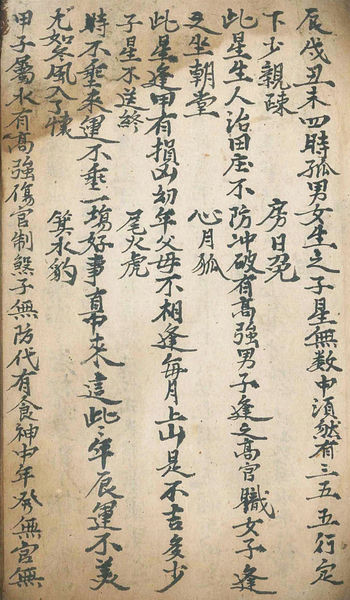 辰戌丑未四時孤男女生之子星無数中須然有三五五行定
下少親疎　房日兔
此星生人治田庄不防冲破有高強男子逢之高官職女子逢
之坐朝堂　心月狐
此星逢甲有損凶幼年父母不相逢每月上山是不吉多少
子星不送終　尾火虎
時不乖來運不乖一塲好事直中來這此年辰運不美
尤如冬風入了懷　箕水豹
甲子屬水有高強傷官制煞子無防代有食神中年發無官無